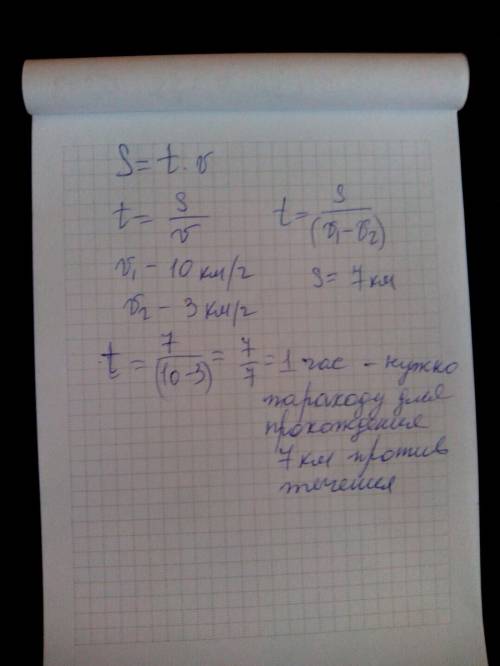 S = t · v
t = S/v
t = S/(v₁-v₂)
v₁ - 10 км/г
S = 7 км
v₂ - 3 км/г
t = 7/(10-3) = 7/7 = 1 час - нужно
параходу для
прохождения
7 км против
течения